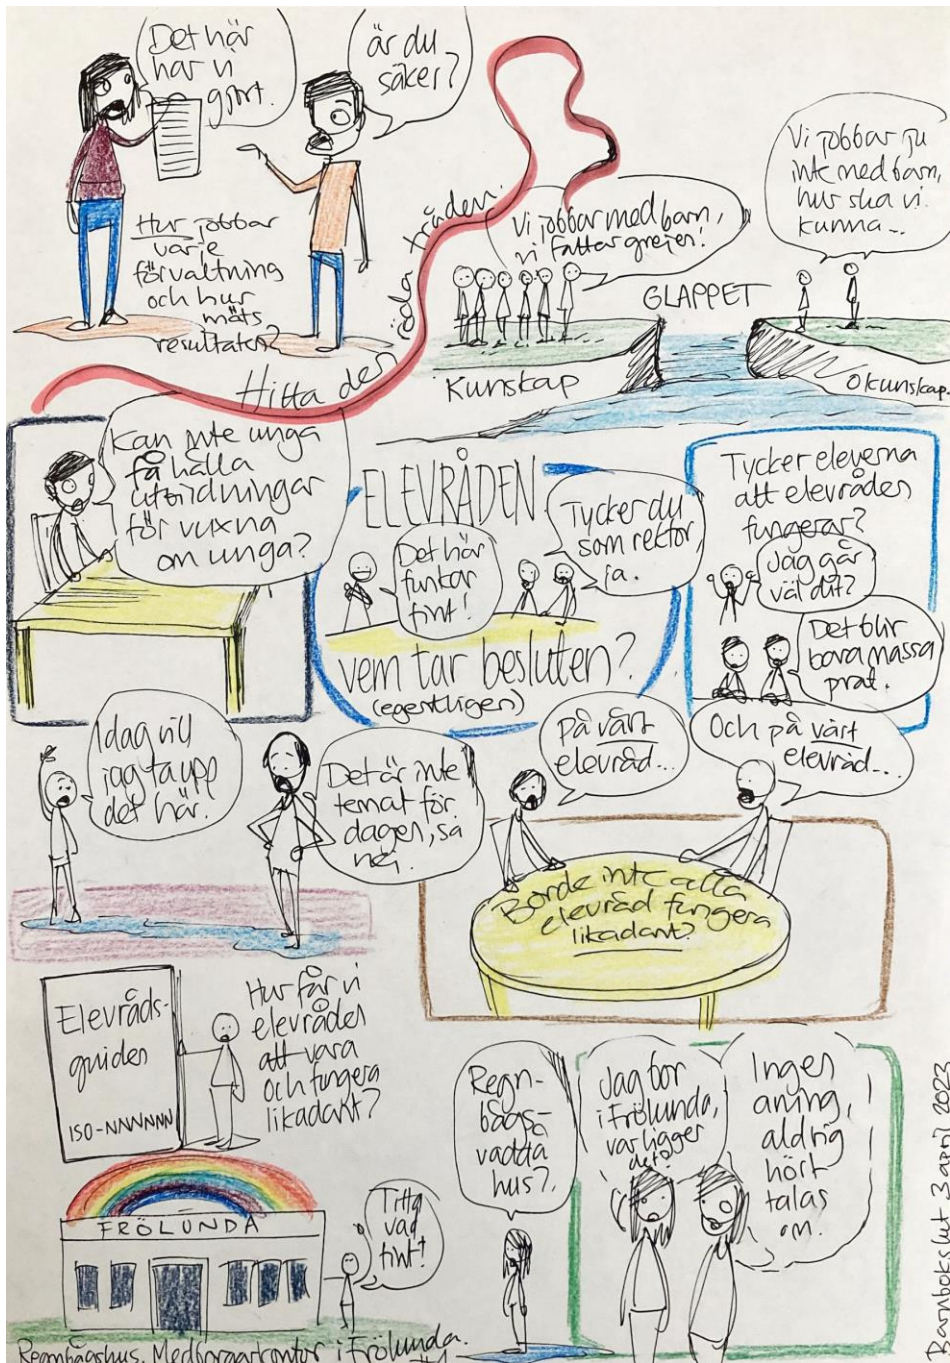 Det här
har vi
gjort.
är du
säker?
Hur jobbar
varje
förvaltning
och hur
mäts
resultaten?
Hitta den röda tråden.
Vi jobbar med barn,
vi fattar grejen!
Vi jobbar ju
inte med barn,
hur ska vi
kunna...
GLAPPET
Kunskap
Okunskap.
Kan inte unga
få hålla
utbildningar
för vuxna
om unga?
ELEVRÅDEN
Det här
funkar
fint!
Tycker du
som rektor,
ja.
vem tar besluten?
(egentligen)
Tycker eleverna
att elevråden
fungerar?
Jag går
väl dit?
Det blir
bara massa
prat.
Idag vill
jag ta upp
det här.
Det är inte
temat för
dagen, så
nej.
På vårt
elevråd...
Och på vårt
elevråd...
Borde inte alla
elevråd fungera
likadant?
Elevråds-
guiden
ISO-NNNNNN
Hur får vi
elevråden
att vara
och fungera
likadant?
Regn-
bågs-
vadda
hus?
Jag bor
i Frölunda,
var ligger
det?
Ingen
aning,
aldrig
hört
talas
om.
FRÖLUNDA
Titta
vad
fint!
Regnbågshus. Medborgarkontor i Frölunda.
Barnbokslut 3 april 2023